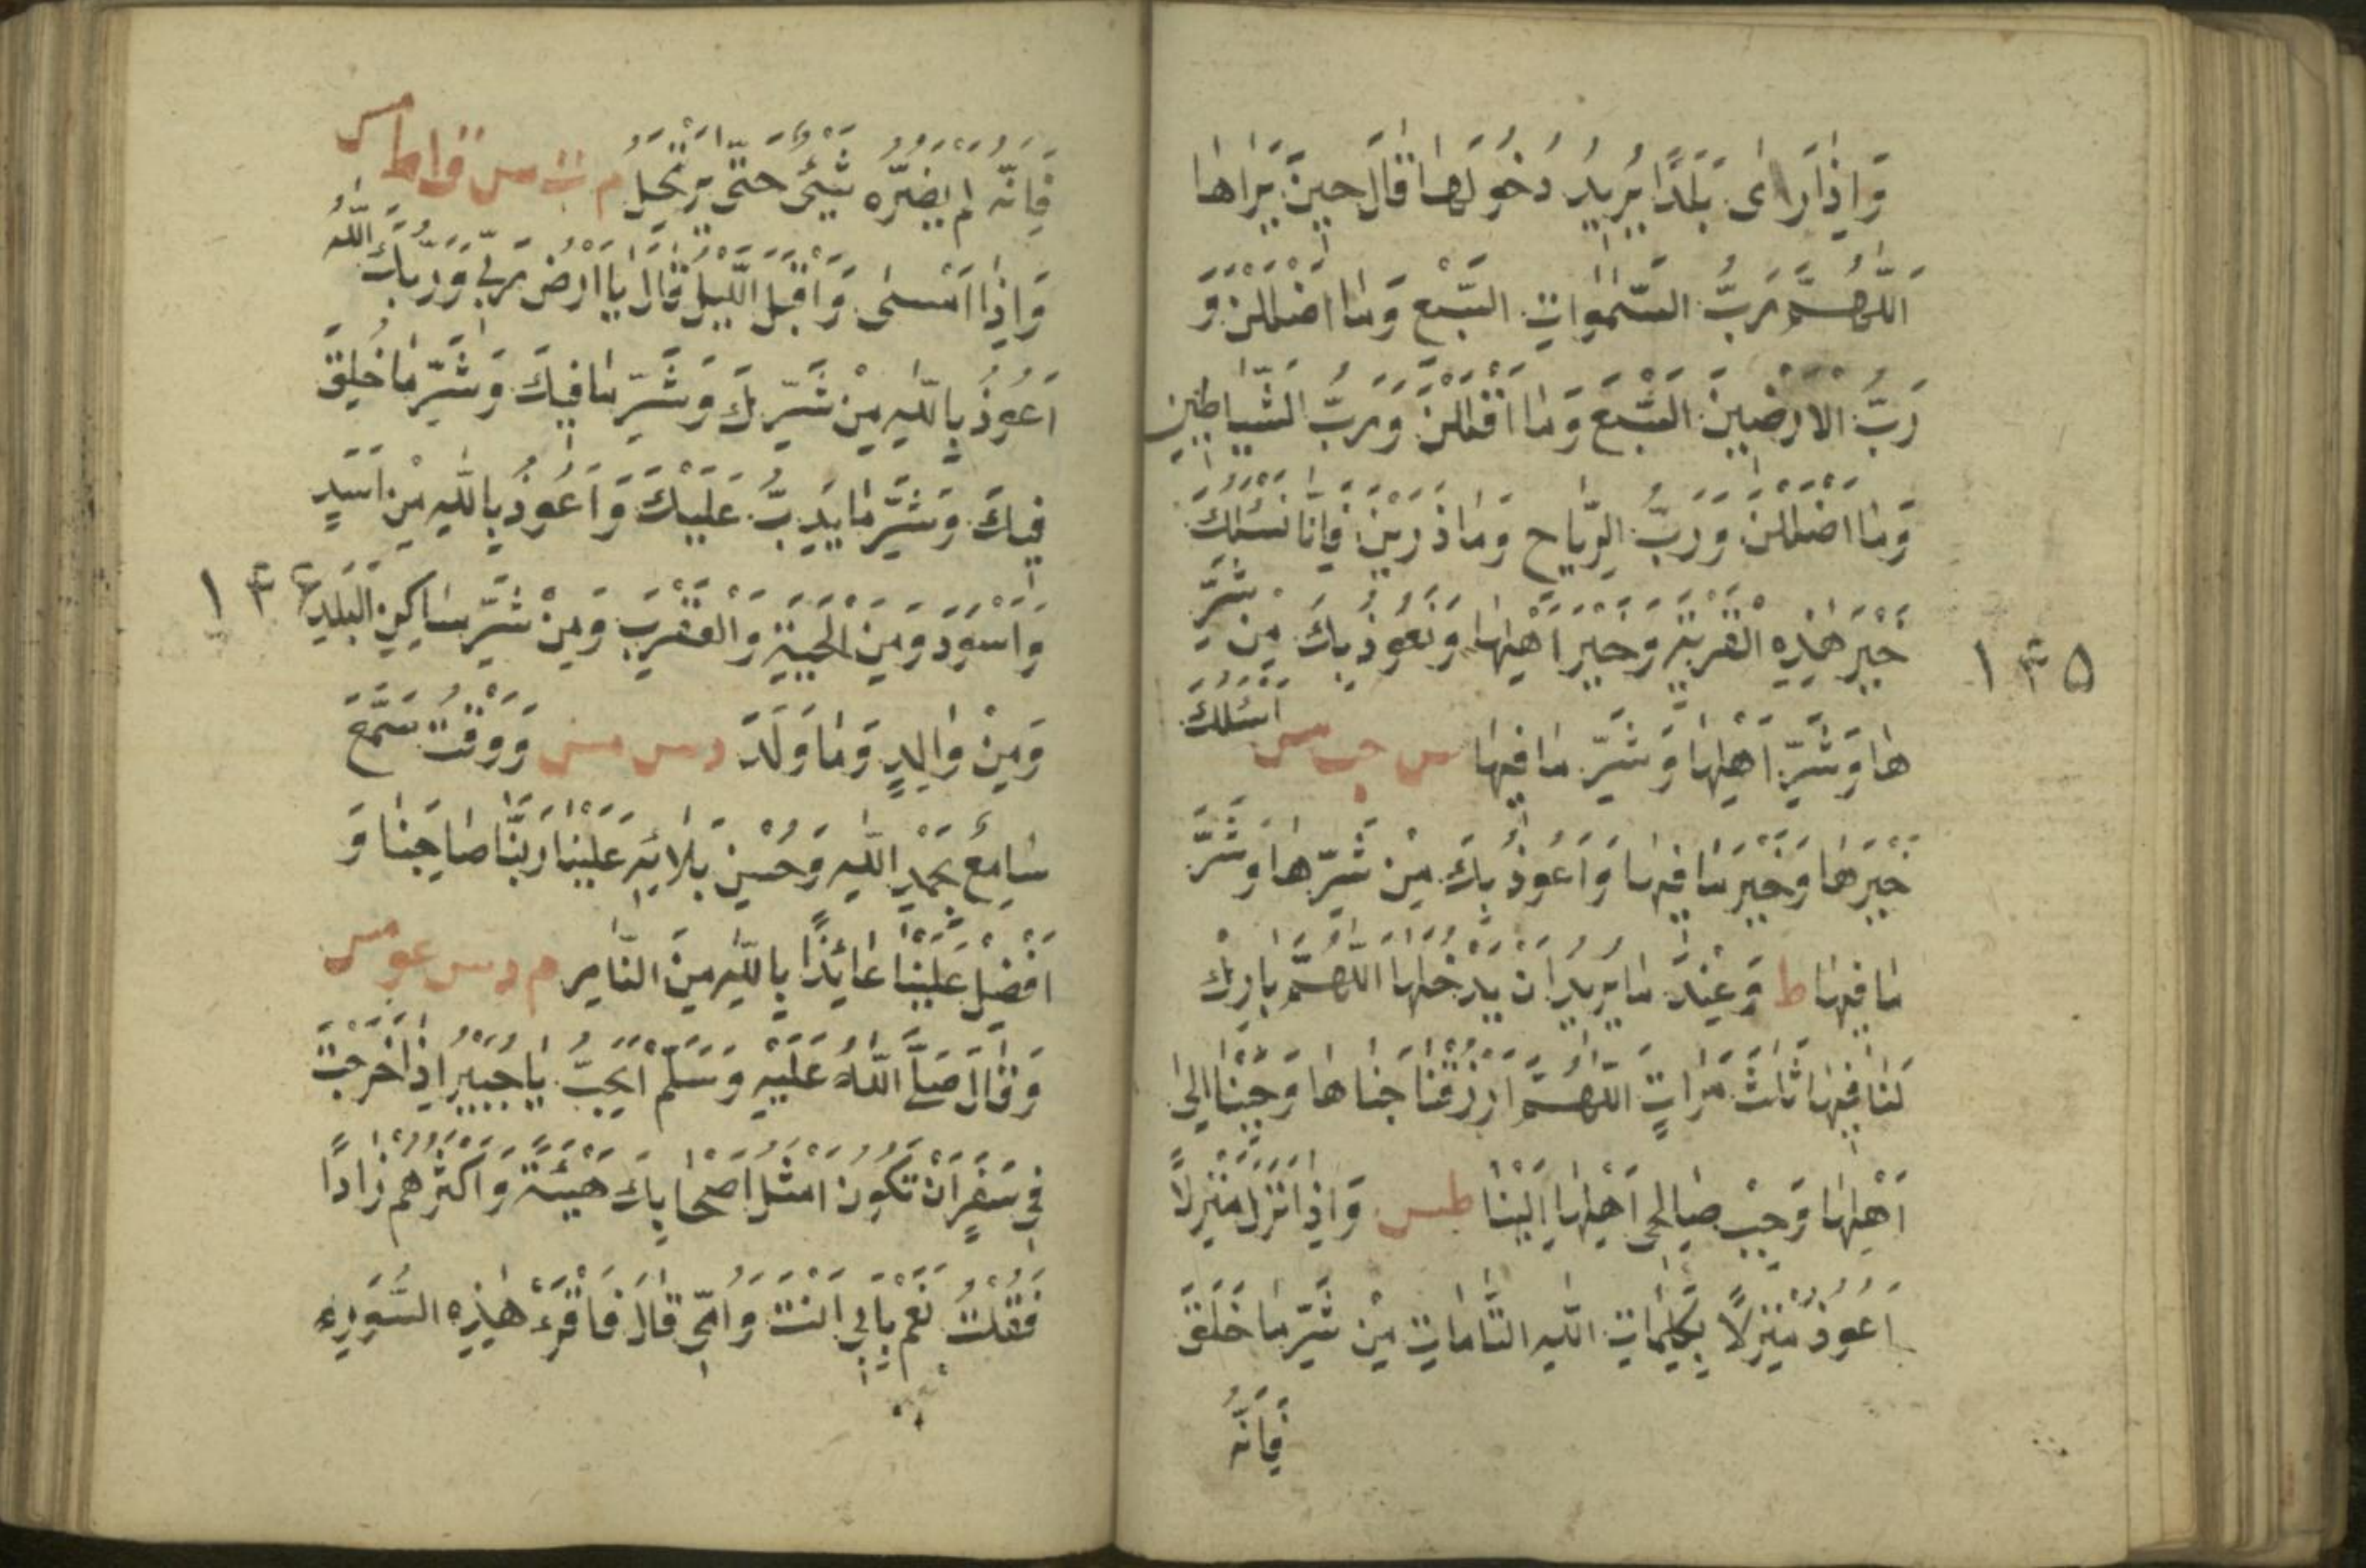 وَاِذَا رَاٰى بَلَدًا يُرِيدُ دُخُولَهَا قَالَ حِينَ يَرَاهَا
اَللّٰهُمَّ رَبَّ السَّمٰوَاتِ السَّبْعِ وَمَا اَظْلَلْنَ وَ
رَبَّ الْاَرَضِينَ السَّبْعِ وَمَا اَقْلَلْنَ وَرَبَّ الشَّيَاطِينِ
وَمَا اَضْلَلْنَ وَرَبَّ الرِّيَاحِ وَمَا ذَرَيْنَ فَاِنَّا نَسْئَلُكَ
خَيْرَ هٰذِهِ الْقَرْيَةِ وَخَيْرَ اَهْلِهَا وَنَعُوذُ بِكَ مِنْ شَرِّ
هَا وَشَرِّ اَهْلِهَا وَشَرِّ مَا فِيهَا س حب مس اَسْئَلُكَ
خَيْرَهَا وَخَيْرَ مَا فِيهَا وَاَعُوذُ بِكَ مِنْ شَرِّهَا وَشَرِّ
مَا فِيهَا ط وَعِنْدَ مَا يُرِيدُ اَنْ يَدْخُلَهَا اَللّٰهُمَّ بَارِكْ
لَنَا فِيهَا ثَلٰثَ مَرَّاتٍ اَللّٰهُمَّ ارْزُقْنَا جَنَاهَا وَحَبِّبْنَا اِلٰى
اَهْلِهَا وَحَبِّبْ صَالِحِى اَهْلِهَا اِلَيْنَا طس وَاِذَا نَزَلَ مَنْزِلًا
اَعُوذُ مَنْزِلًا بِكَلِمَاتِ اللّٰهِ التَّامَّاتِ مِنْ شَرِّ مَا خَلَقَ
فَاِنَّهُ
١٤٥
فَاِنَّهُ لَمْ يَضُرَّهُ شَيْئٌ حَتّٰى يَرْتَحِلَ م ت س ق ا ط مص
وَاِذَا اَمْسٰى وَاَقْبَلَ اللَّيْلُ قَالَ يَا اَرْضُ رَبِّى وَرَبُّكَ اللّٰهُ
اَعُوذُ بِاللّٰهِ مِنْ شَرِّكَ وَشَرِّ مَا فِيكَ وَشَرِّ مَا خُلِقَ
فِيكَ وَشَرِّ مَا يَدِبُّ عَلَيْكَ وَاَعُوذُ بِاللّٰهِ مِنْ اَسَدٍ
وَاَسْوَدَ وَمِنَ الْحَيَّةِ وَالْعَقْرَبِ وَمِنْ شَرِّ سَاكِنِ الْبَلَدِ
وَمِنْ وَالِدٍ وَمَا وَلَدَ د س مس وَوَقْتَ سَمَّعَ
سَامِعٌ بِحَمْدِ اللّٰهِ وَحُسْنِ بَلَائِهِ عَلَيْنَا رَبَّنَا صَاحِبْنَا وَ
اَفْضِلْ عَلَيْنَا عَائِذًا بِاللّٰهِ مِنَ النَّارِ م د س عو مس
وَقَالَ صَلَّى اللّٰهُ عَلَيْهِ وَسَلَّمَ اَتُحِبُّ يَا جُبَيْرُ اِذَا خَرَجْتَ
فِى سَفَرٍ اَنْ تَكُونَ اَمْثَلَ اَصْحَابِكَ هَيْئَةً وَاَكْثَرَهُمْ زَادًا
فَقُلْتُ نَعَمْ بِاَبِى اَنْتَ وَاُمِّى قَالَ فَاقْرَءْ هٰذِهِ السُّوَرِ
١٤٦